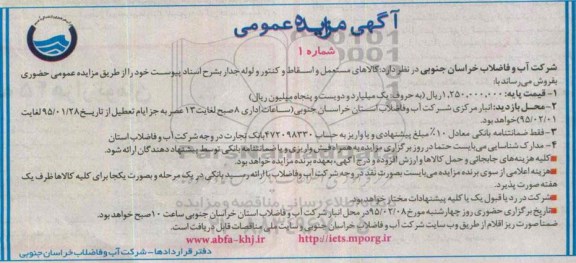 آگهی مزایده عمومی
شماره ۱
شرکت آب و فاضلاب خراسان جنوبی در نظر دارد: کالاهای مستعمل و اسقاط و کنتور و لوله جدار بشرح اسناد پیوست خود را از طریق مزایده عمومی حضوری
بفروش می‌رساند با:
۱- قیمت پایه: ۱,۲۵۰,۰۰۰,۰۰۰ریال (به حروف: یک میلیارد و دویست و پنجاه میلیون ریال)
۲- محل بازدید: انبار مرکزی شرکت آب و فاضلاب استان خراسان جنوبی (ساعات اداری ۸صبح لغایت ۱۳عصر به جز ایام تعطیل از تاریخ ۹۵/۰۱/۲۸ لغایت
۹۵/۰۲/۰۱)خواهد بود.
۳- فقط ضمانتنامه بانکی معادل ۱۰٪ مبلغ پیشنهادی و یا واریز به حساب ۴۷۲۰۹۸۳۳۰بانک تجارت در وجه شرکت آب و فاضلاب استان
۴- مدارک شناسایی می‌بایست حتما در روز برگزاری مزایده به همراه فیش واریزی و یا ضمانتنامه بانکی توسط پیشنهاد دهندگان ارائه شود.
کلیه هزینه‌های جابجائی و حمل کالاها و ارزش افزوده و درج آگهی، بعهده برنده مزایده خواهد بود.
هزینه اعلامی از سوی برنده مزایده می‌بایست بصورت نقد در وجه شرکت آب و فاضلاب با ارائه رسید بانکی در یک مرحله و بصورت یکجا برای کلیه کالاها ظرف یک
هفته صورت پذیرد.
شرکت در رد یا قبول یک یا کلیه پیشنهادات مختار خواهد بود.
تاریخ برگزاری حضوری روز چهارشنبه مورخ ۹۵/۰۲/۰۸در محل انبار شرکت آب و فاضلاب استان خراسان جنوبی ساعت ۱۰صبح خواهد بود.
ضمنا صورت ریز اقلام از طریق وب سایت شرکت آب و فاضلاب خراسان جنوبی و سایت ملی مناقصات قابل دریافت است.
http://iets.mporg.ir www.abfa-khj.ir
دفتر قراردادها - شرکت آب و فاضلاب خراسان جنوبی